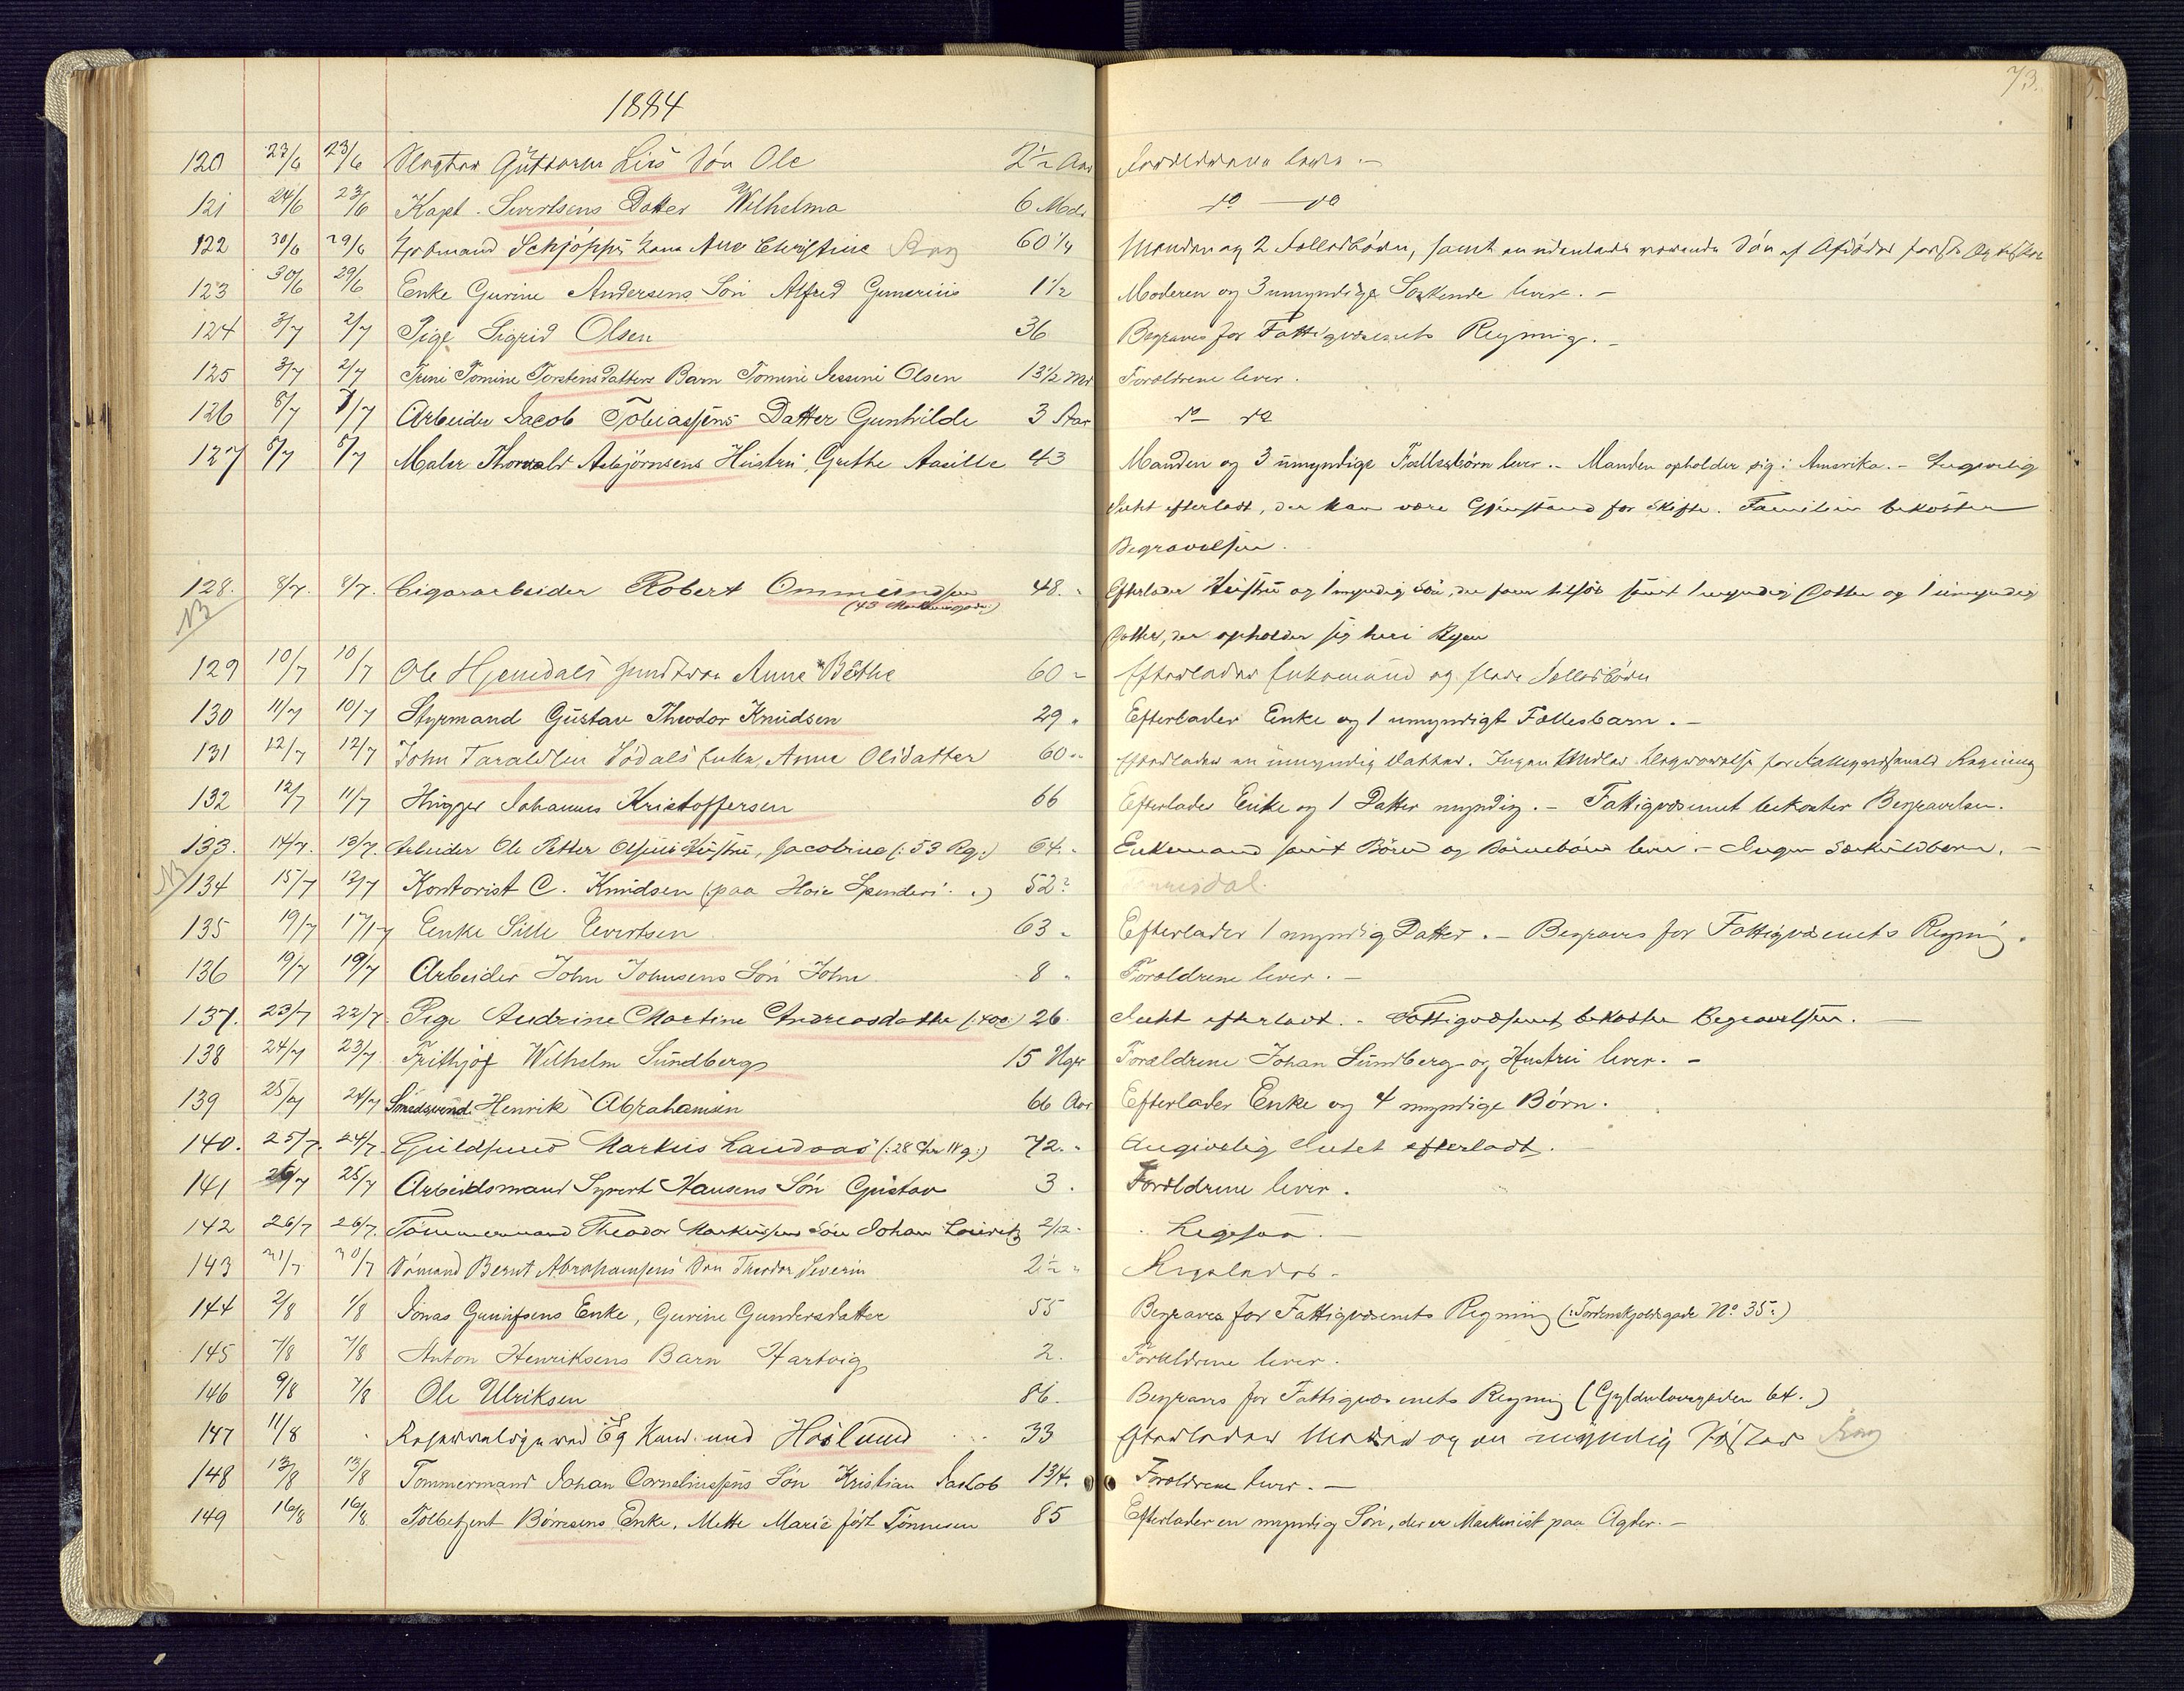 73.
1884
120 23/6 23/6 Guttorm Lies Søn Ole 2½ Aar Forældrene lever. -
121 24/6 23/6 Kapt. Sivertsens Datter Wilhelma 6 Mdr do - do
122 30/6 29/6 Schjøpps Kone Ane Christine 60 1/4 Manden og 2 Fællesbørn, samt en værende Søn af
123 30/6 29/6 Enke Gurine Andersens Søn Alfred Gunerius 1½ Moderen og 3 umyndige Søskende lever. -
124 3/7 2/7 Pige Sigrid Olsen 36 Begraves for Fattigvæsenets Regning. -
125 3/7 2/7 Trine Tomine Torstensdatters Barn Tomine Jessine Olsen 13½ Md Forældrene lever.
126 8/7 7/7 Arbeider Jacob Tobiassens Datter Gunhilde 3 Aar do - do
127 8/7 8/7 Maler Thorvald Asbjørnsens Hustru, Grethe Aasille 43 Manden og 3 umyndige Fællesbørn lever. - Manden opholder sig i Amerika. - Angivelig
Intet efterladt, der kan være Gjenstand for Skifte. Familien bekoster
Begravelsen.
128. 8/7. 8/7. Cigararbeider Robert Ommundsen 48. " Efterlader Hustru og 1 myndig Søn, der farer tilsøs samt 1 myndig Datter og 1 umyndig
NB (43 )
Datter, der opholder sig her i Byen
129 10/7 10/7 Ole Hjemdals Hustru Anne Bethe 60 " Efterlader Enkemand og flere Fællesbørn
130 11/7 10/7 Styrmand Gustav Theodor Knudsen 29 " Efterlader Enke og 1 umyndigt Fællesbarn. -
131 12/7 12/7 John Taraldsen Sødals Enke, Anne Olsdatter 60 " Efterlader en umyndig Datter. Ingen Midler. Begravelse for Fattigvæsenets Regning
132 12/7 11/7 Hugger Johannes Kristoffersen 66 Efterlader Enke og 1 Datter myndig. - Fattigvæsenet bekoster Begravelsen.
133. 14/7. 13/7. Arbeider Ole Petter Olsens Hustru, Jacobine (: 53 Rg :) 64. " Enkemand samt Børn og Børnebørn lever. - Ingen Særkuldbørn. -
NB 134 15/7 12/7 Kontorist C. Knudsen (paa Høie Spinderi :) 52?
135 19/7 17/7 Enke Sille Evertsen 63 " Efterlader 1 myndig Datter. - Begraves for Fattigvæsenets Regning.
136 19/7 19/7 Arbeider John Johnsens Søn John 8 " Forældrene lever. -
137. 23/7 22/7. Pige Andrine Martine Andreasdatter 26. Intet efterladt. - Fattigvæsenet bekoster Begravelsen. -
138 24/7 23/7 Frithjof Wilhelm Sundberg 15 Uger Forældrene Johan Sundberg og Hustru lever. -
139 25/7 24/7 Smedsvend Henrik Abrahamsen 66 Aar Efterlader Enke og 4 myndige Børn.
140. 25/7. 24/7. Guldsmed Markus Landaas (: 28 :) 72. " Angivelig Intet efterladt. -
141 26/7 25/7 Arbeidsmand Syvert Hansens Søn Gustav 3. Forældrene lever.
142 26/7 26/7. Tømmermand Theodor Markussens Søn Johan Lauritz 2/12. Ligesaa. -
143 31/7 30/7 Sømand Bernt Abrahamsens Søn Theodor Severin 2½ "
144 2/8 1/8 Jonas Gunufsens Enke, Gurine Gundersdatter 55 Begraves for Fattigvæsenets Regning (: Tordenskjoldsgade No 35 :)
145 7/8 7/8 Anton Henriksens Barn Hartvig 2. Forældrene lever.
146 9/8 7/8 Ole Ulriksen 86. Begraves for Fattigvæsenets Regning (Gyldenløvesgaden 64.)
147 11/8 " ved Eg Høslund 33 Efterlader Moder og en myndig Søster
148 13/8 13/8 Tømmermand Johan Corneliussens Søn Kristian Jakob 1 3/4. Forældrene lever. -
149 16/8 16/8 Toldbetjent Børresens Enke, Mette Marie født Tønnesen 85 Efterlader en myndig Søn, der er Maskinist paa Agder. -